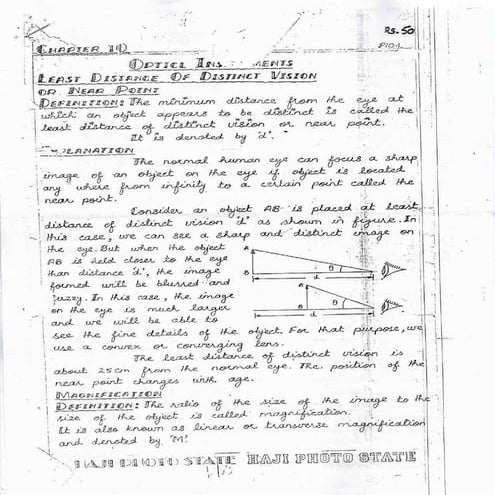 Rs. 50
P10-1
CHAPTER 10
OPTICL INS MENTS
LEAST DISTANCE OF DISTINCT VISION
OR NEAR POINT
DEFINITION: The minimum distance from the eye at
which an object appears to be distinct is called the
least distance of distinct vision or near point.
It is denoted by 'd'.
EXPLANATION
The normal human eye can focus a sharp
image of an object on the eye if object is located
any where from infinity to a certain point called the
near point.
Consider an object AB is placed at least
distance of distinct vision 'd' as shown in figure. In
this case, we can see a sharp and distinct image on
the eye. But when the object
AB is held closer to the eye
than distance 'd', the image
formed will be blurred and
fuzzy. In this case, the image
on the eye is much larger
and we will be able to
see the fine details of the object. For that purpose, we
use a convex or converging lens.
A
B
θ
d
A
B
θ
d
The least distance of distinct vision is
about 25cm from the normal eye. The position of the
near point changes with age.
MAGNIFICATION
DEFINITION: The ratio of the size of the image to the
size of the object is called magnification.
It is also known as linear or transverse magnification
and denoted by 'M'
HAJI PHOTO STATE HAJI PHOTO STATE